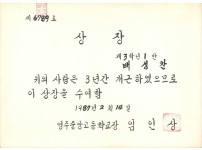 제6789호
상장
제3학년1반
배성찬
위의 사람은 3년간 개근하였으므로
이 상장을 수여함
1989년 2월 14일
영주중앙고등학교장 임인상